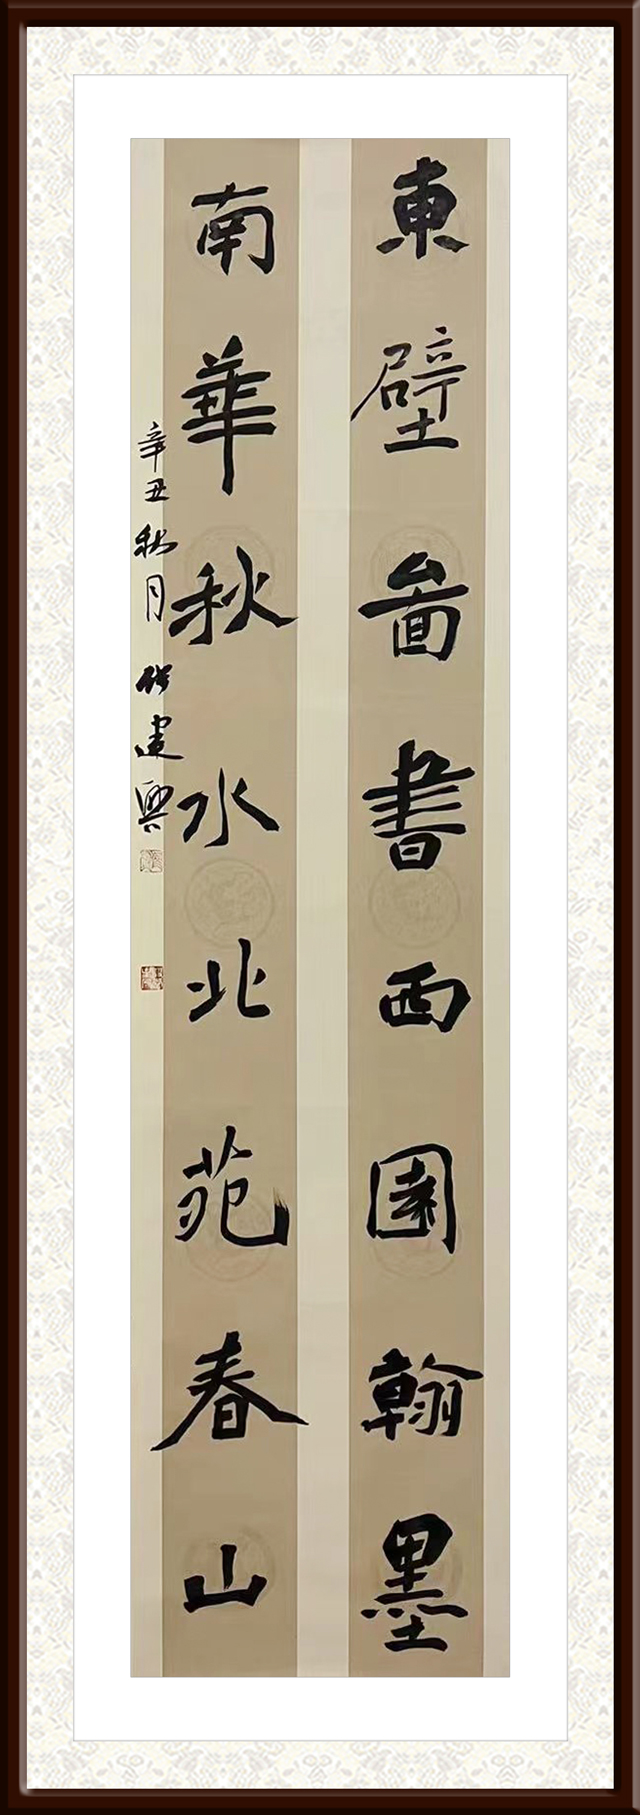 東壁啚書西園翰墨
南華秋水北苑春山
辛丑秋月 建興